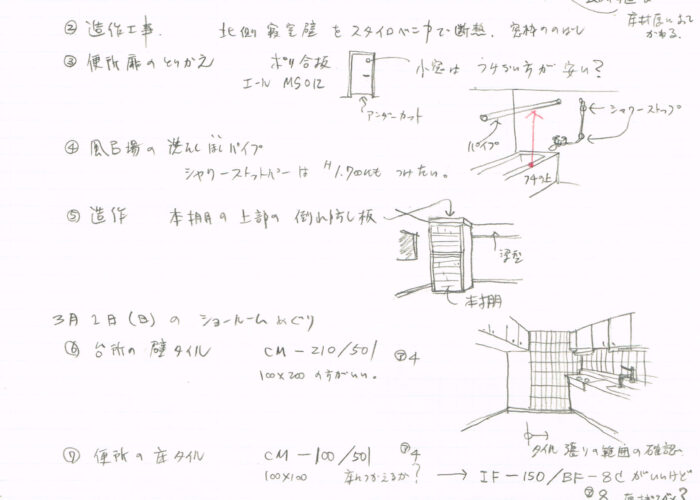 床材厚によって
かわる。
② 造作工事. 北側寝室壁をスタイロベニヤで断熱. 窓枠ののばし
③ 便所扉のとりかえ ポリ合板 小窓は うすい方が安い?
エール MS012
アンダーカット
シャワーストップ
パイプ
④ 風呂場の洗たくぼしパイプ
シャワーストットバーは H1.700にも つけたい。
フチの上
⑤ 造作 本棚の上部の倒れ防し板
梁型
本棚
3月2日(日)の ショールームめぐり
⑥ 台所の壁タイル CM-210/501 4
100×200の方がいい。
タイル張りの範囲の確認
⑦ 便所の床タイル CM-100/501 4
100×100 床につかえるか? → IF-150/BF-8 がいいけど
8